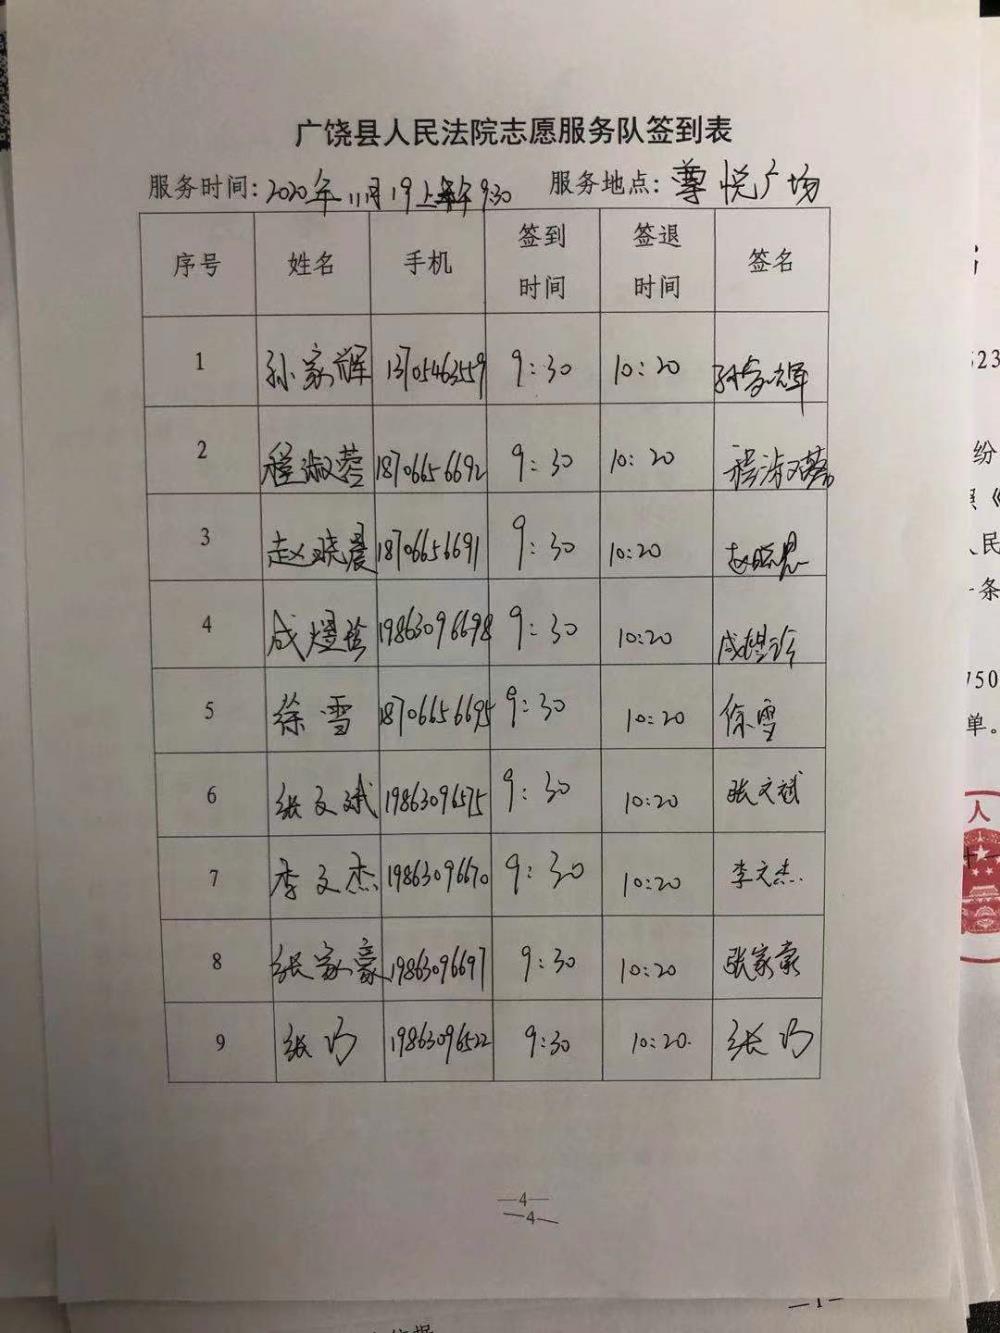 广饶县人民法院志愿服务队签到表
服务时间：2020年11月19上午9:30 服务地点：尊悦广场
序号 姓名 手机 签到时间 签退时间 签名
1 孙家辉 13705463559 9:30 10:20 孙家辉
2 程淑蓉 18706656692 9:30 10:20 程淑蓉
3 赵晓晨 18706656691 9:30 10:20 赵晓晨
4 成煜 19863096698 9:30 10:20 成煜
5 徐雪 18706656695 9:30 10:20 徐雪
6 张文斌 19863096575 9:30 10:20 张文斌
7 李文杰 19863096670 9:30 10:20 李文杰
8 张家豪 19863096697 9:30 10:20 张家豪
9 张巧 19863096522 9:30 10:20 张巧
—4—
—4—
523
纷
《
人民
一条
750
单。
人
十一
—1—